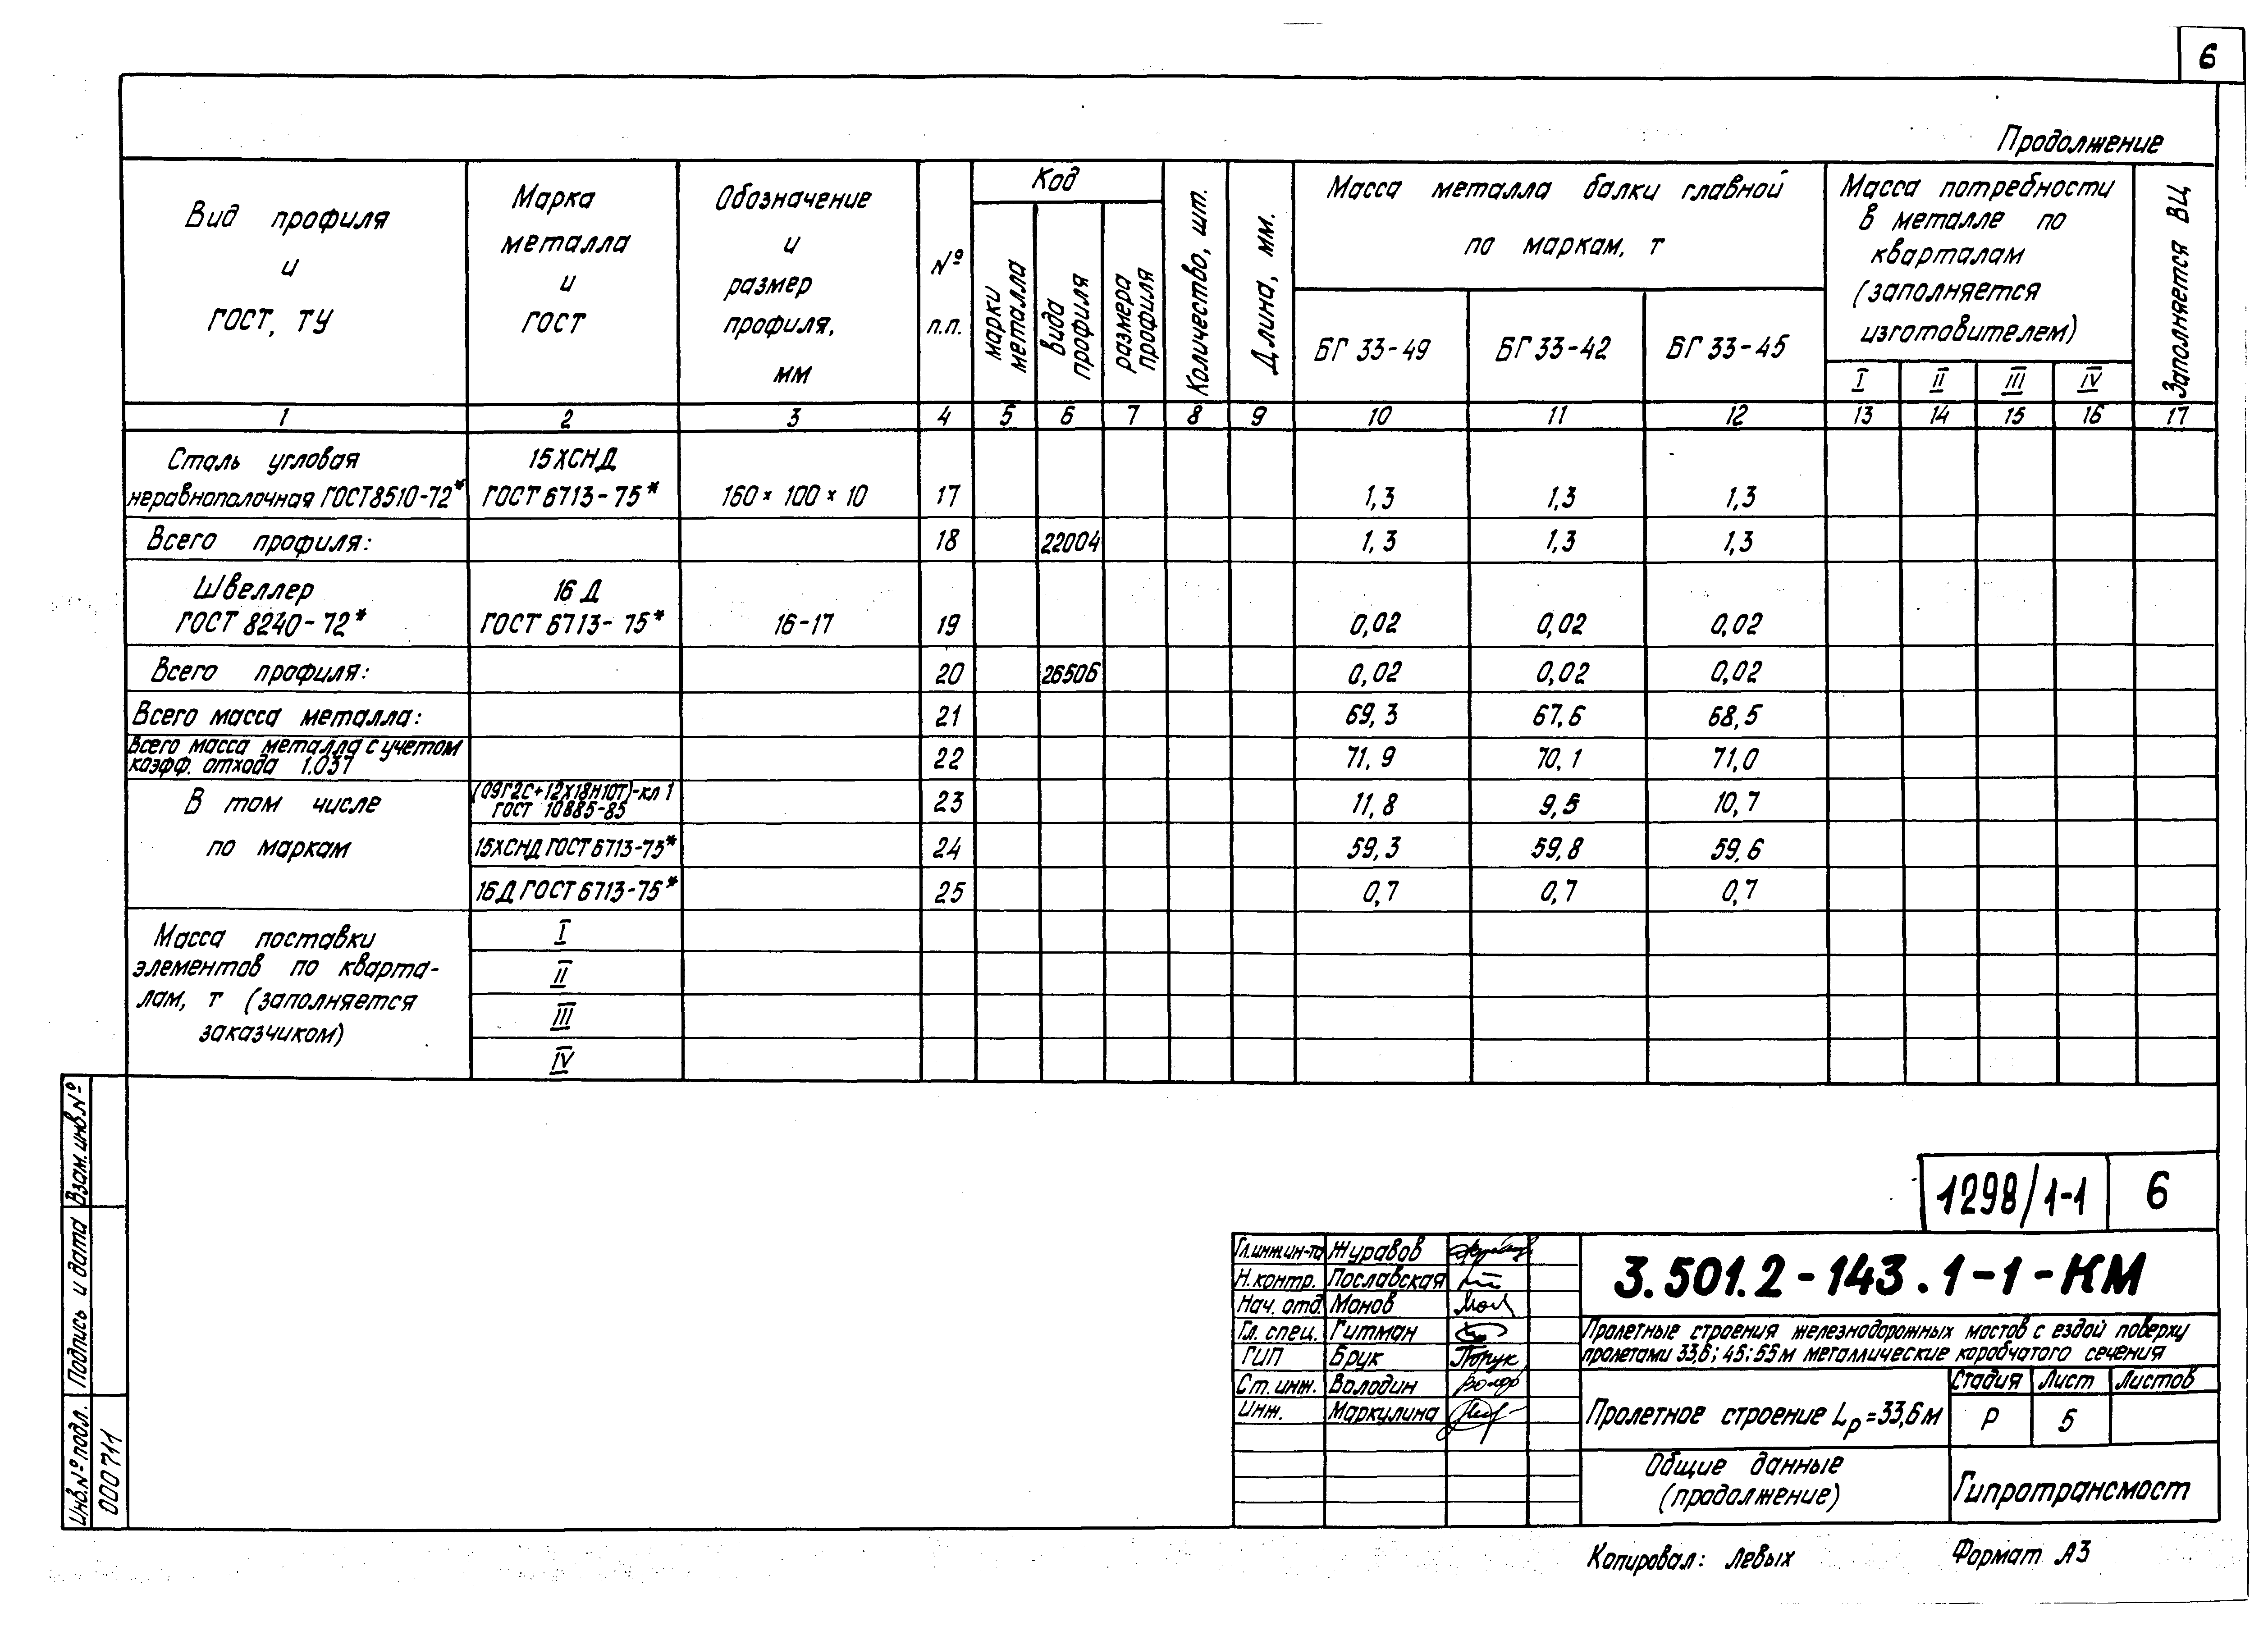 6
Продолжение
Вид профиля и ГОСТ, ТУ
Марка металла и ГОСТ
Обозначение и размер профиля, мм
№ п.п.
Код
марки металла
вида профиля
размера профиля
Количество, шт.
Длина, мм.
Масса металла балки главной по маркам, т
БГ 33-49
БГ 33-42
БГ 33-45
Масса потребности в металле по кварталам (заполняется изготовителем)
I II III IV
Заполняется ВЦ
1 2 3 4 5 6 7 8 9 10 11 12 13 14 15 16 17
Сталь угловая 15ХСНД
неравнополочная ГОСТ 8510-72* ГОСТ 6713-75* 160 × 100 × 10 17 1,3 1,3 1,3
Всего профиля: 18 22004 1,3 1,3 1,3
Швеллер 16 Д
ГОСТ 8240-72* ГОСТ 6713-75* 16-17 19 0,02 0,02 0,02
Всего профиля: 20 26506 0,02 0,02 0,02
Всего масса металла: 21 69,3 67,6 68,5
Всего масса металла с учетом
коэфф. отхода 1.037 22 71,9 70,1 71,0
В том числе (09Г2С+12Х18Н10Т)-кл 1
ГОСТ 10885-85 23 11,8 9,5 10,7
по маркам 15ХСНД ГОСТ 6713-75* 24 59,3 59,8 59,6
16Д ГОСТ 6713-75* 25 0,7 0,7 0,7
Масса поставки
элементов по кварта-
лам, т (заполняется
заказчиком)
I
II
III
IV
Взам. инв. №
Подпись и дата
Инв. № подл.
000711
1298/1-1 6
Гл.инж.ин-та Журавов
Н.контр. Пославская
Нач. отд. Монов
Гл. спец. Гитман
ГИП Брук
Ст. инж. Володин
Инж. Маркулина
3.501.2-143.1-1-КМ
Пролетные строения железнодорожных мостов с ездой поверху
пролетами 33,6; 45; 55м металлические коробчатого сечения
Пролетное строение Lр=33,6м
Стадия Лист Листов
Р 5
Общие данные
(продолжение)
Гипротрансмост
Копировал: Левых Формат А3